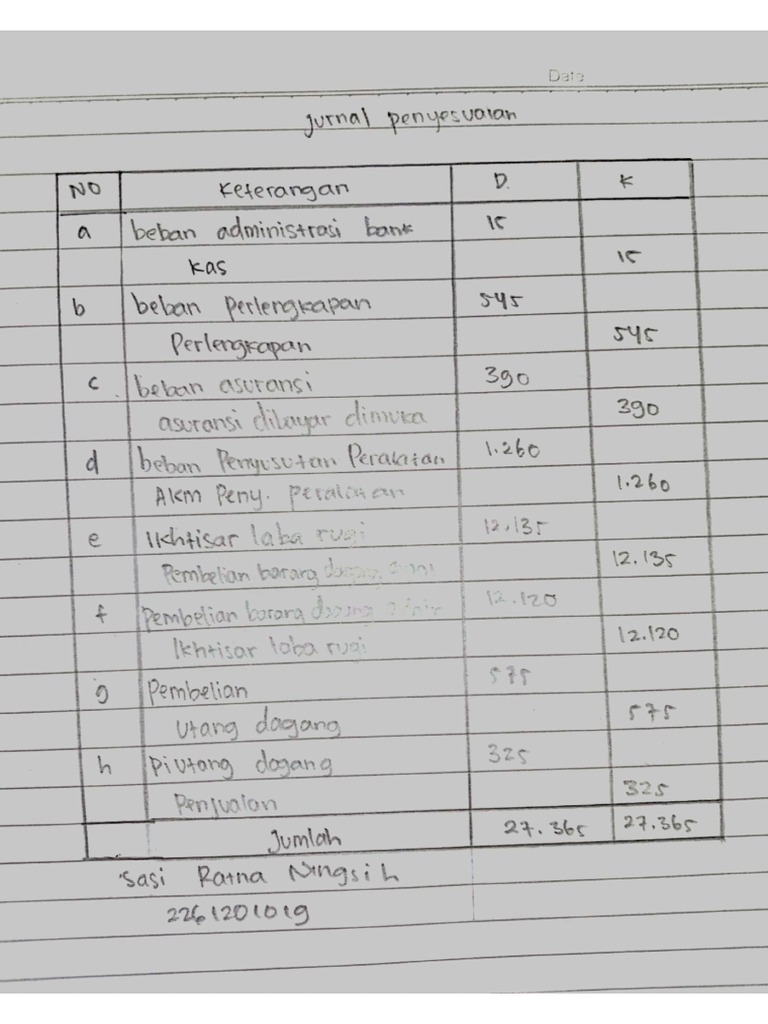 Date
jurnal penyesuaian
NO Keterangan D. K
a beban administrasi bank 15
kas 15
b beban Perlengkapan 545
Perlengkapan 545
c beban asuransi 390
asuransi dibayar dimuka 390
d beban Penyusutan Peralatan 1.260
Akm Peny. peralatan 1.260
e Ikhtisar laba rugi 12.135
Pembelian barang dagang 12.135
f Pembelian barang dagang 12.120
Ikhtisar laba rugi 12.120
g Pembelian 575
Utang dagang 575
h Piutang dagang 325
Penjualan 325
Jumlah 27.365 27.365
Sasi Ratna Ningsih
2261201019